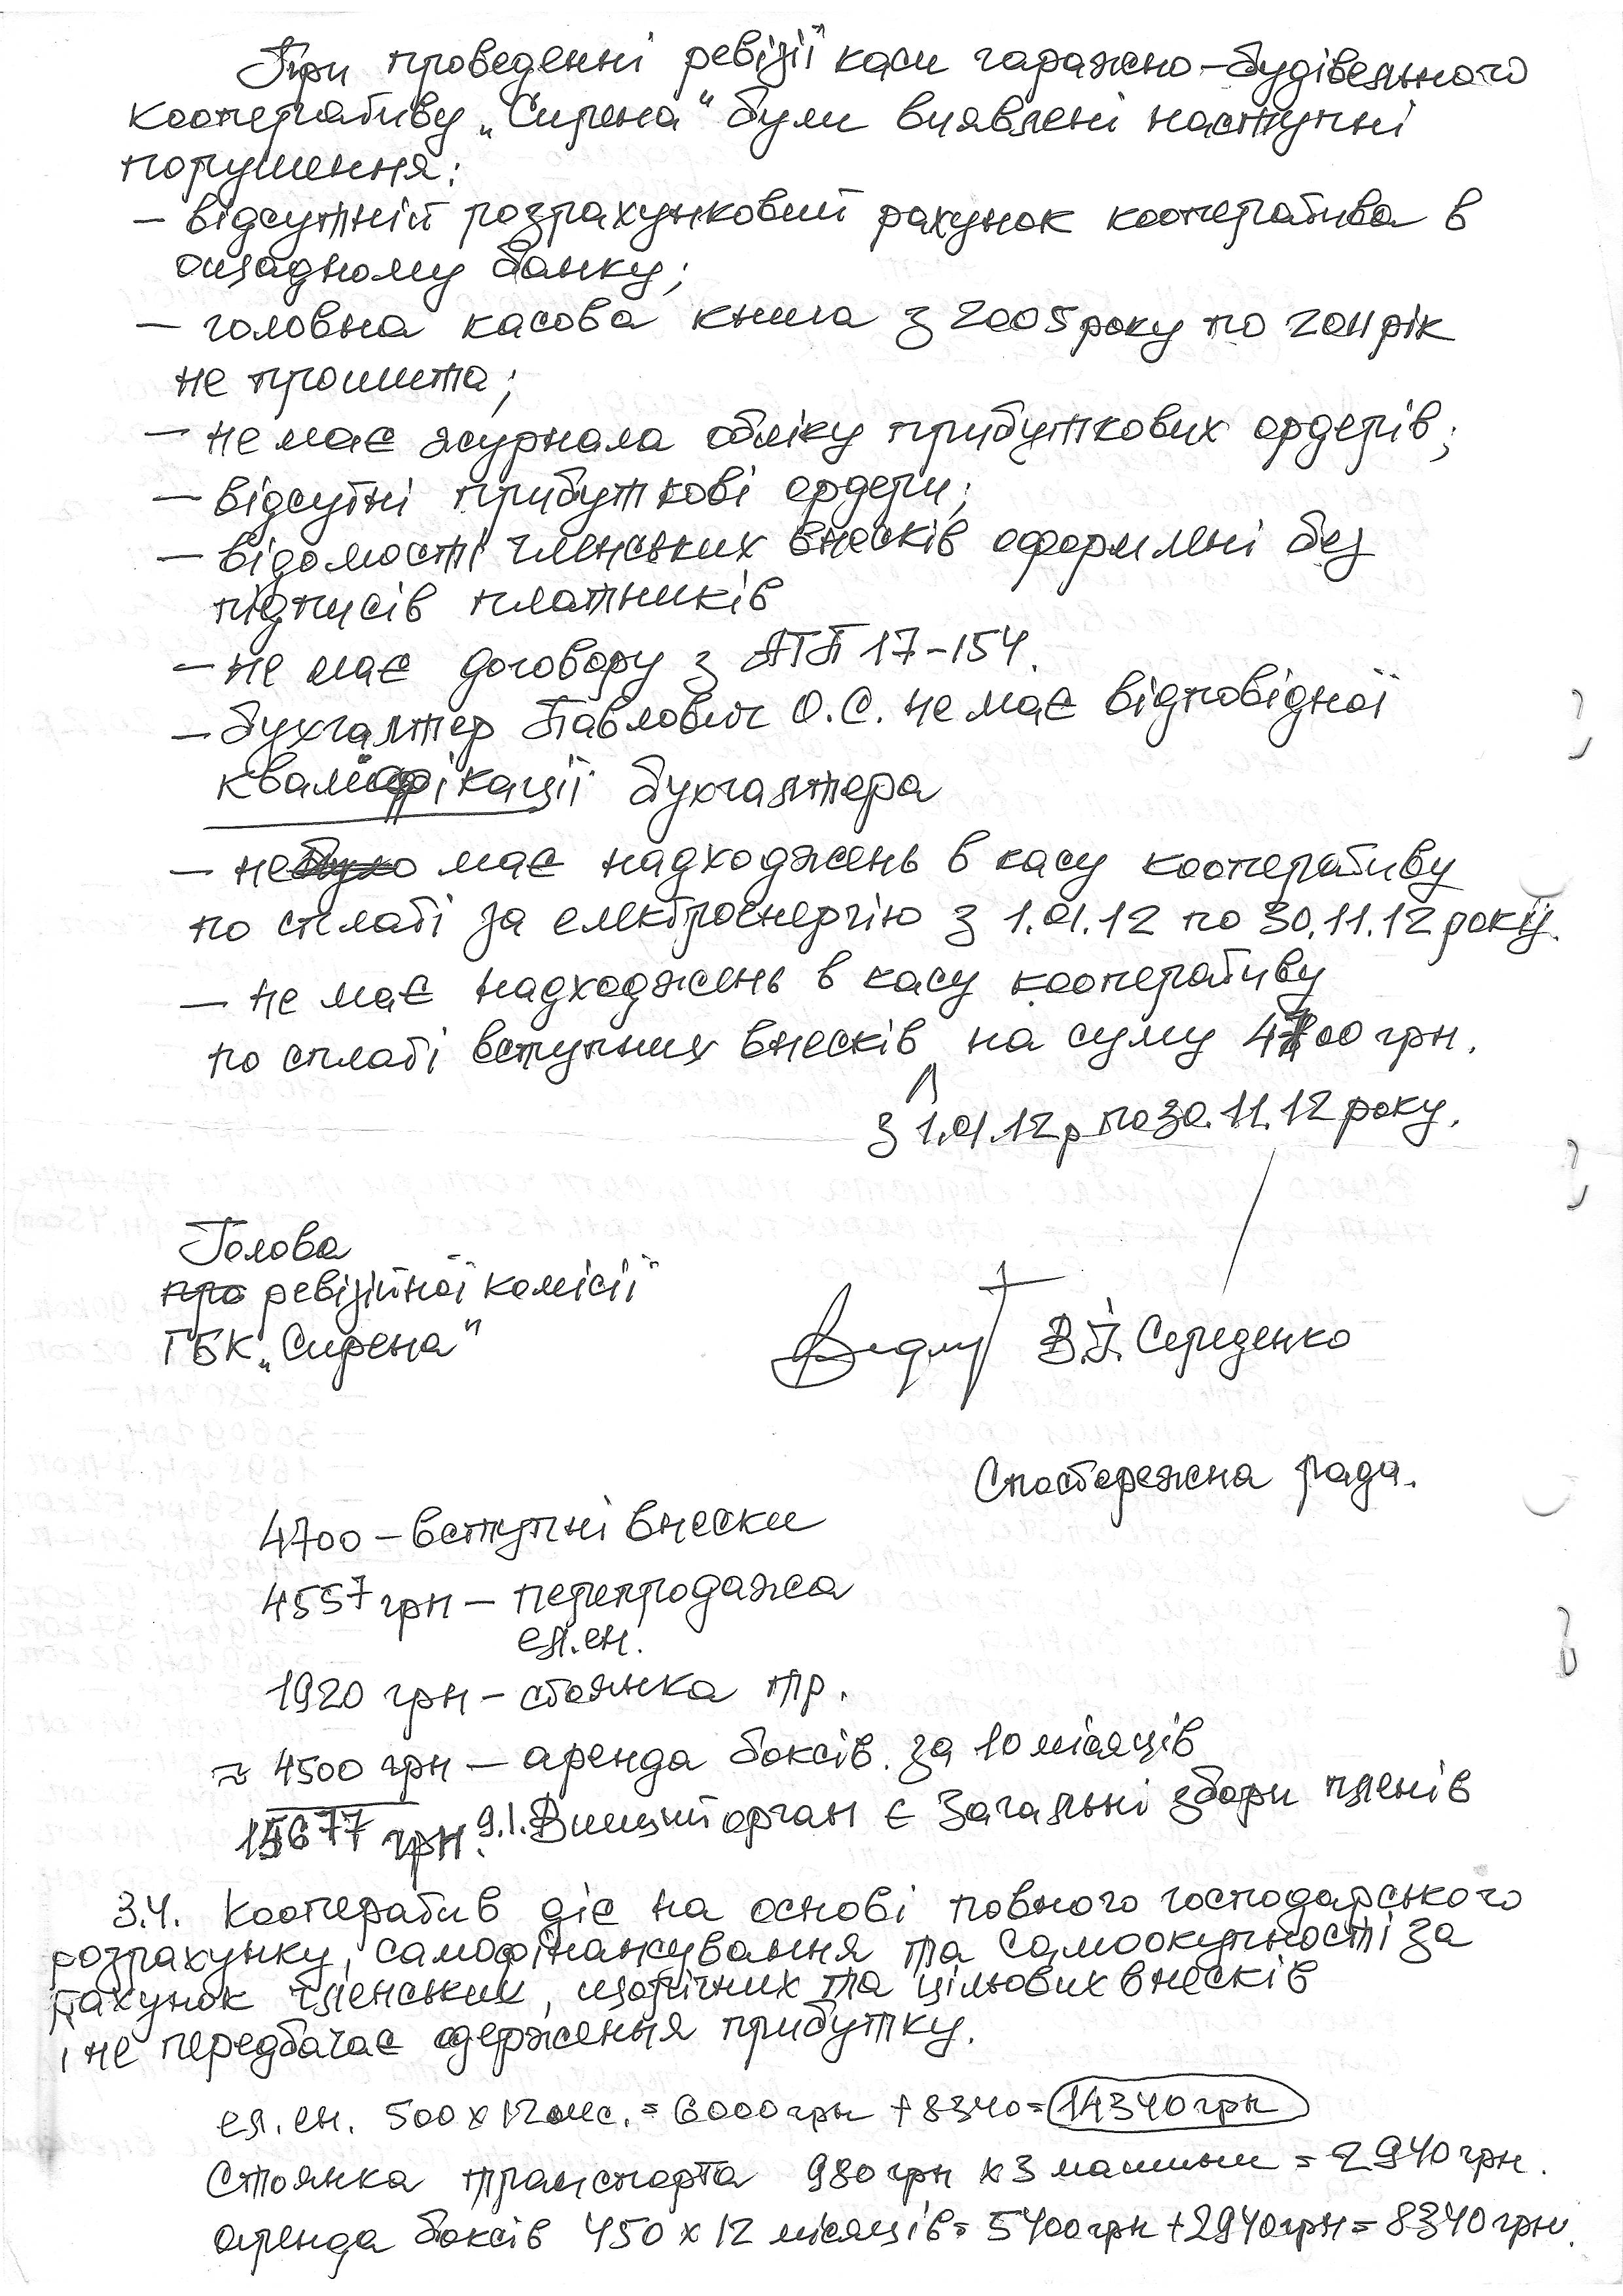 При проведенні ревізії каси гаражно-будівельного
кооперативу „Сирена" були виявлені наступні
порушення:
– відсутній розрахунковий рахунок кооператива в
ощадному банку;
– головна касова книга з 2005 року по 2011 рік
не прошита;
– не має журнала обліку прибуткових ордерів;
– відсутні прибуткові ордери;
– відомості членських внесків оформлені без
підписів платників
– не має договору з АТП 17-154.
– бухгалтер Павлович О.С. не має відповідної
кваліфікації бухгалтера
– не має надходжень в касу кооперативу
по сплаті за електроенергію з 1.01.12 по 30.11.12 року.
– не має надходжень в касу кооперативу
по сплаті вступних внесків на суму 4700 грн.
з 1.01.12р по 30.11.12 року.
Голова
про ревізійної комісії
ГБК „Сирена"
В.І. Середенко
Спостережна рада.
4700 – вступні внески
4557 грн – перепродажа
ел.ен.
1920 грн – стоянка тр.
≈ 4500 грн – аренда боксів за 10 місяців
15677 грн. 9.1. Вищий орган є Загальні збори членів
3.4. Кооператив діє на основі повного господарського
розрахунку, самофінансування та самоокупності за
рахунок членських, щорічних та цільових внесків
і не передбачає одерження прибутку.
ел.ен. 500 х 12 мес. = 6000 грн + 8340 = 14340 грн
Стоянка транспорта 980 грн х 3 машины = 2940 грн.
аренда боксів 450 х 12 місяців = 5400 грн + 2940 грн = 8340 грн.